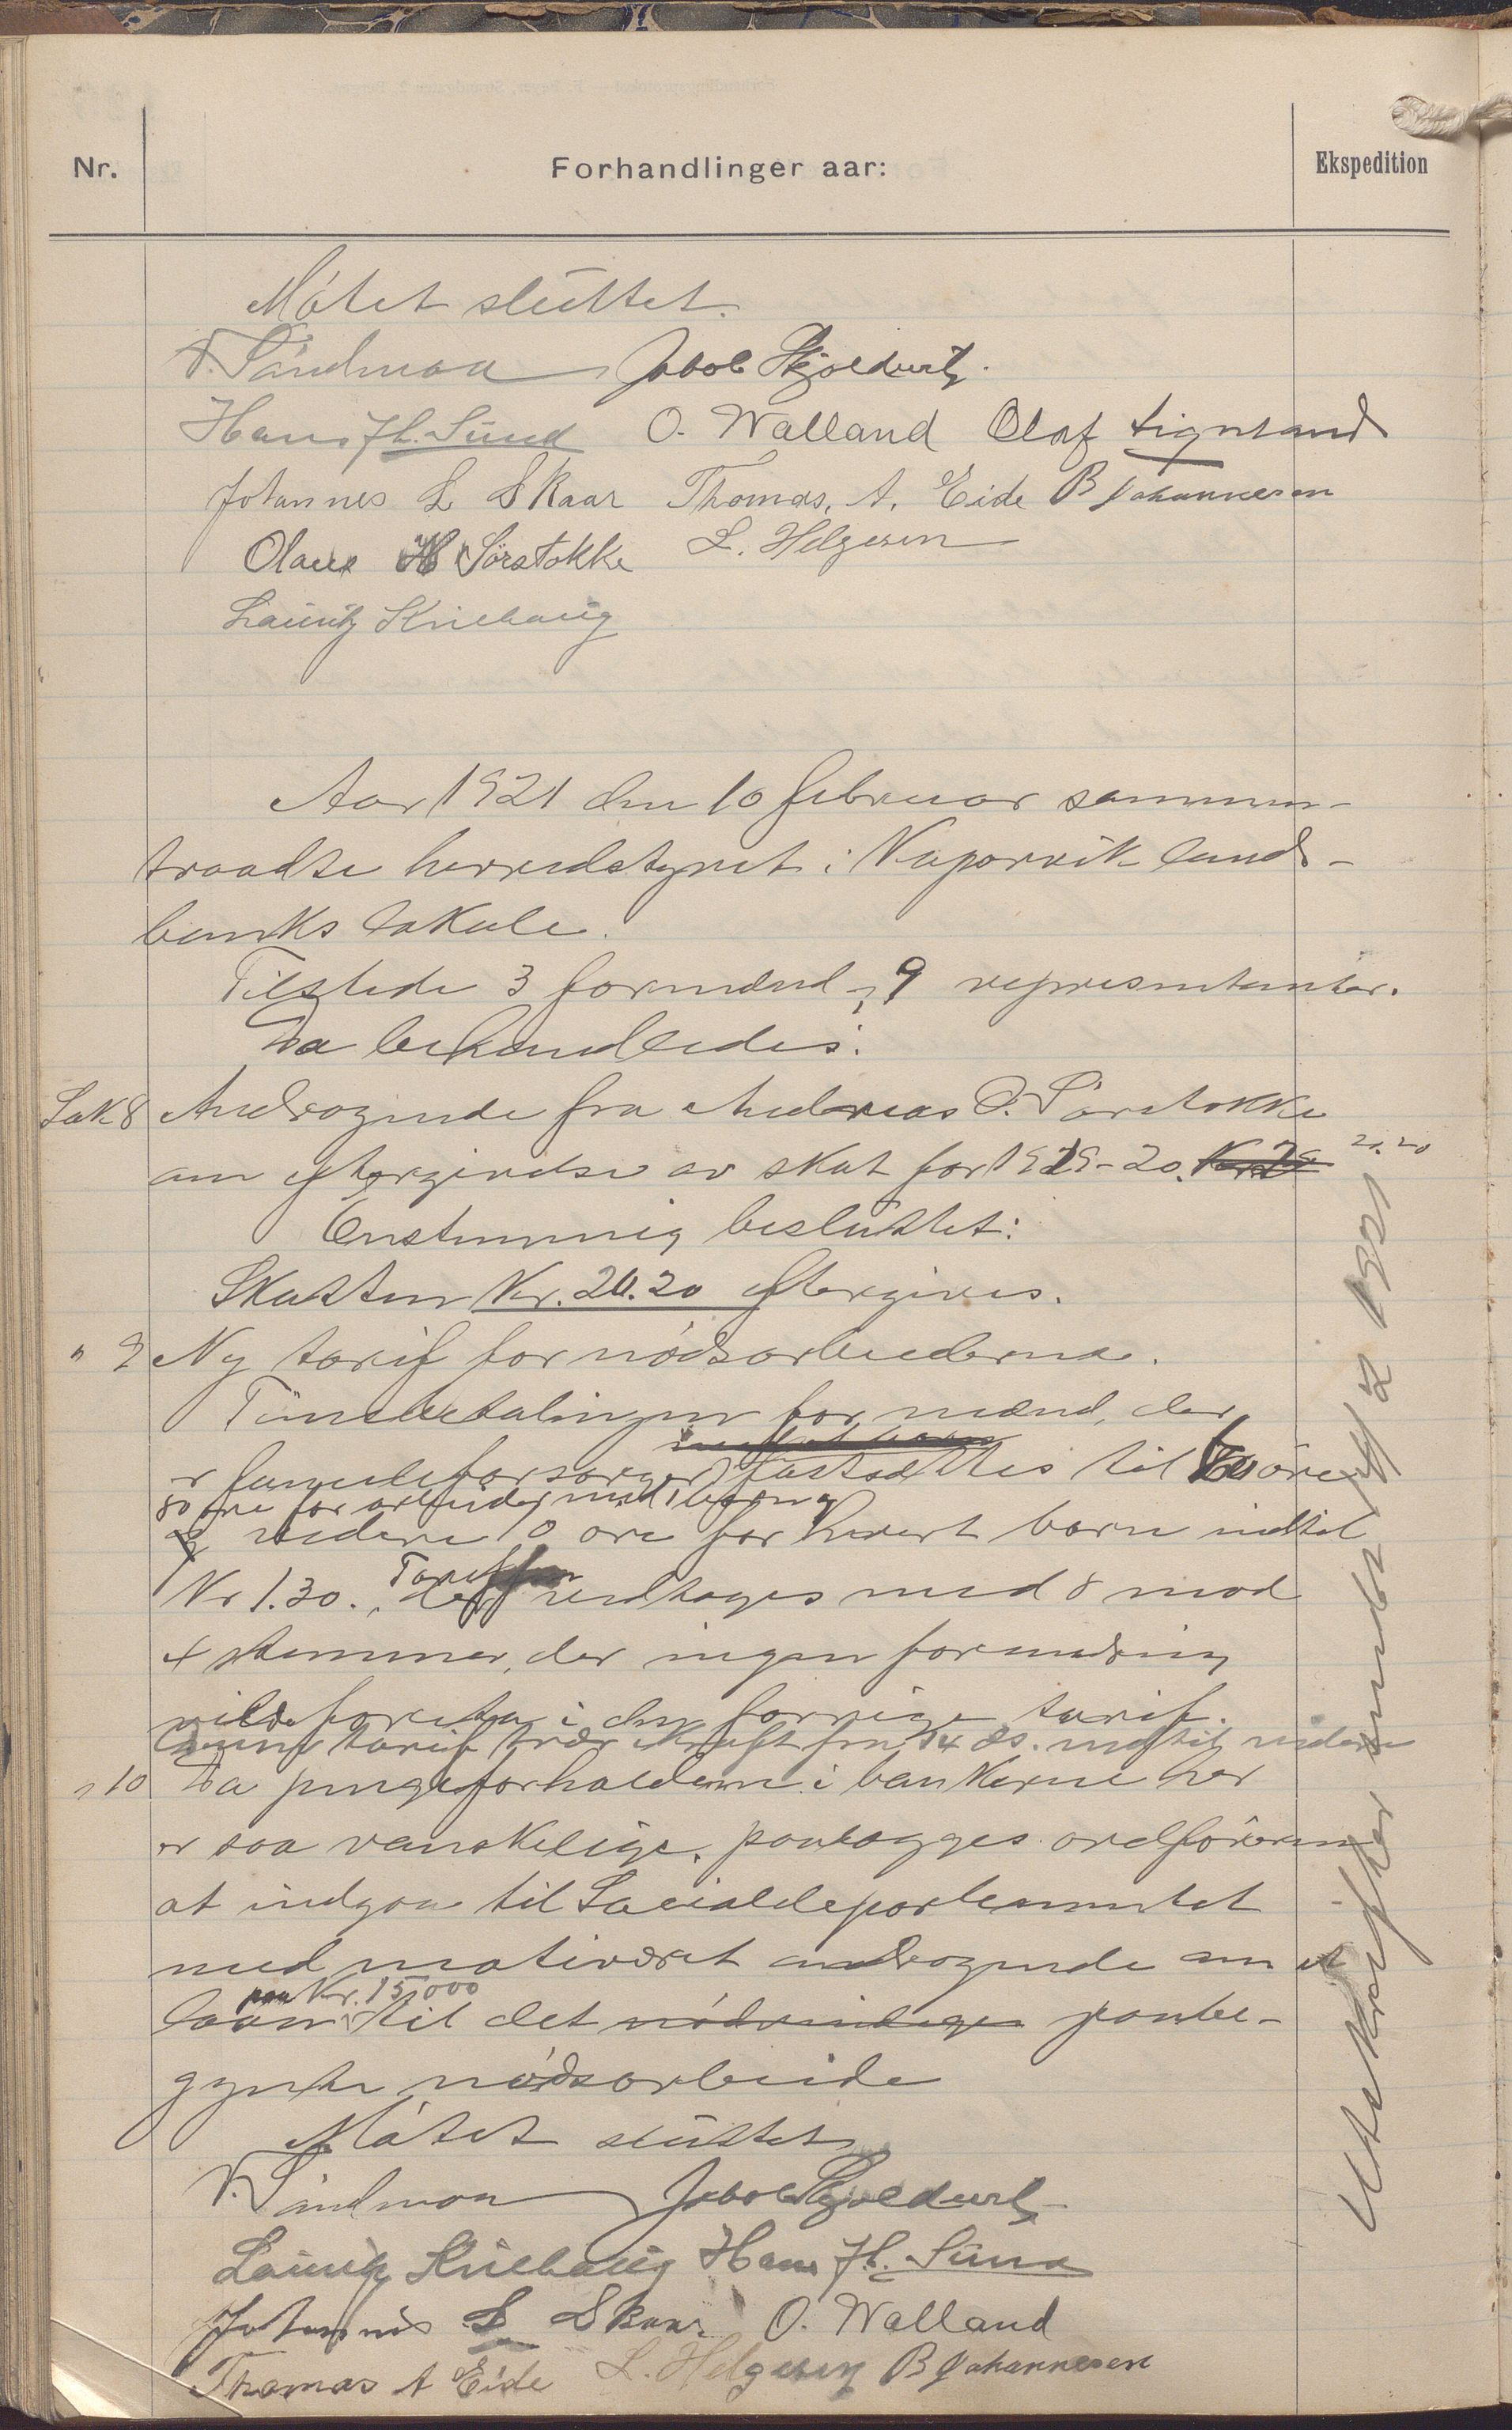 Nr.
Forhandlinger aar:
Ekspedition
Mötet sluttet.
V. Sandmoa Jakob Skjoldevik.
Hans Hl. Sund O. Walland Olaf Lignsand
Johannes L Skaar Thomas. A. Eide B Johannesen
Olaus H Sørstokke L. Helgesen
Lauritz Knebaug
Aar 1921 den 10 februar sammen-
traadte herredstyret i Vaporvik lands-
banks lokale.
Tilstede 3 formænd og 9 representanter.
Da behandledes:
Sak 8 Andragende fra Andreas O. Sørstokke
om eftergivelse av skat for 1919-20. 20.20
Enstemmig besluttet:
Skatten Kr. 20.20 eftergives.
" 9 Ny tarif for nödsarbeiderne.
Timebetalingen for mænd, der
er familieforsörger fastsættes til öre
80 öre for arbeider med
og videre 10 öre for hvert barn indtil
Kr 1.30. Tariffen vedtages med 8 mod
4 stemmer, der ingen forandring
vilde foreta i den forrige tarif.
Denne tarif trær i kraft fra 14 ds. indtil videre
" 10 Da pengeforholdene i bankerne her
er saa vanskelige, paalægges ordföreren
at indgaa til Socialdepartementet
med motiveret andragende om et
laan paa Kr. 15000 til det nödvendige paabe-
gynte nödsarbeide
Mötet sluttet
V. Sandmoa Jakob Skjoldevik
Lauritz Knebaug Hans Hl. Sund
Johannes L Skaar O. Walland
Thomas A Eide L. Helgesen B Johannesen
Utskrifter sendt 11/2 1921